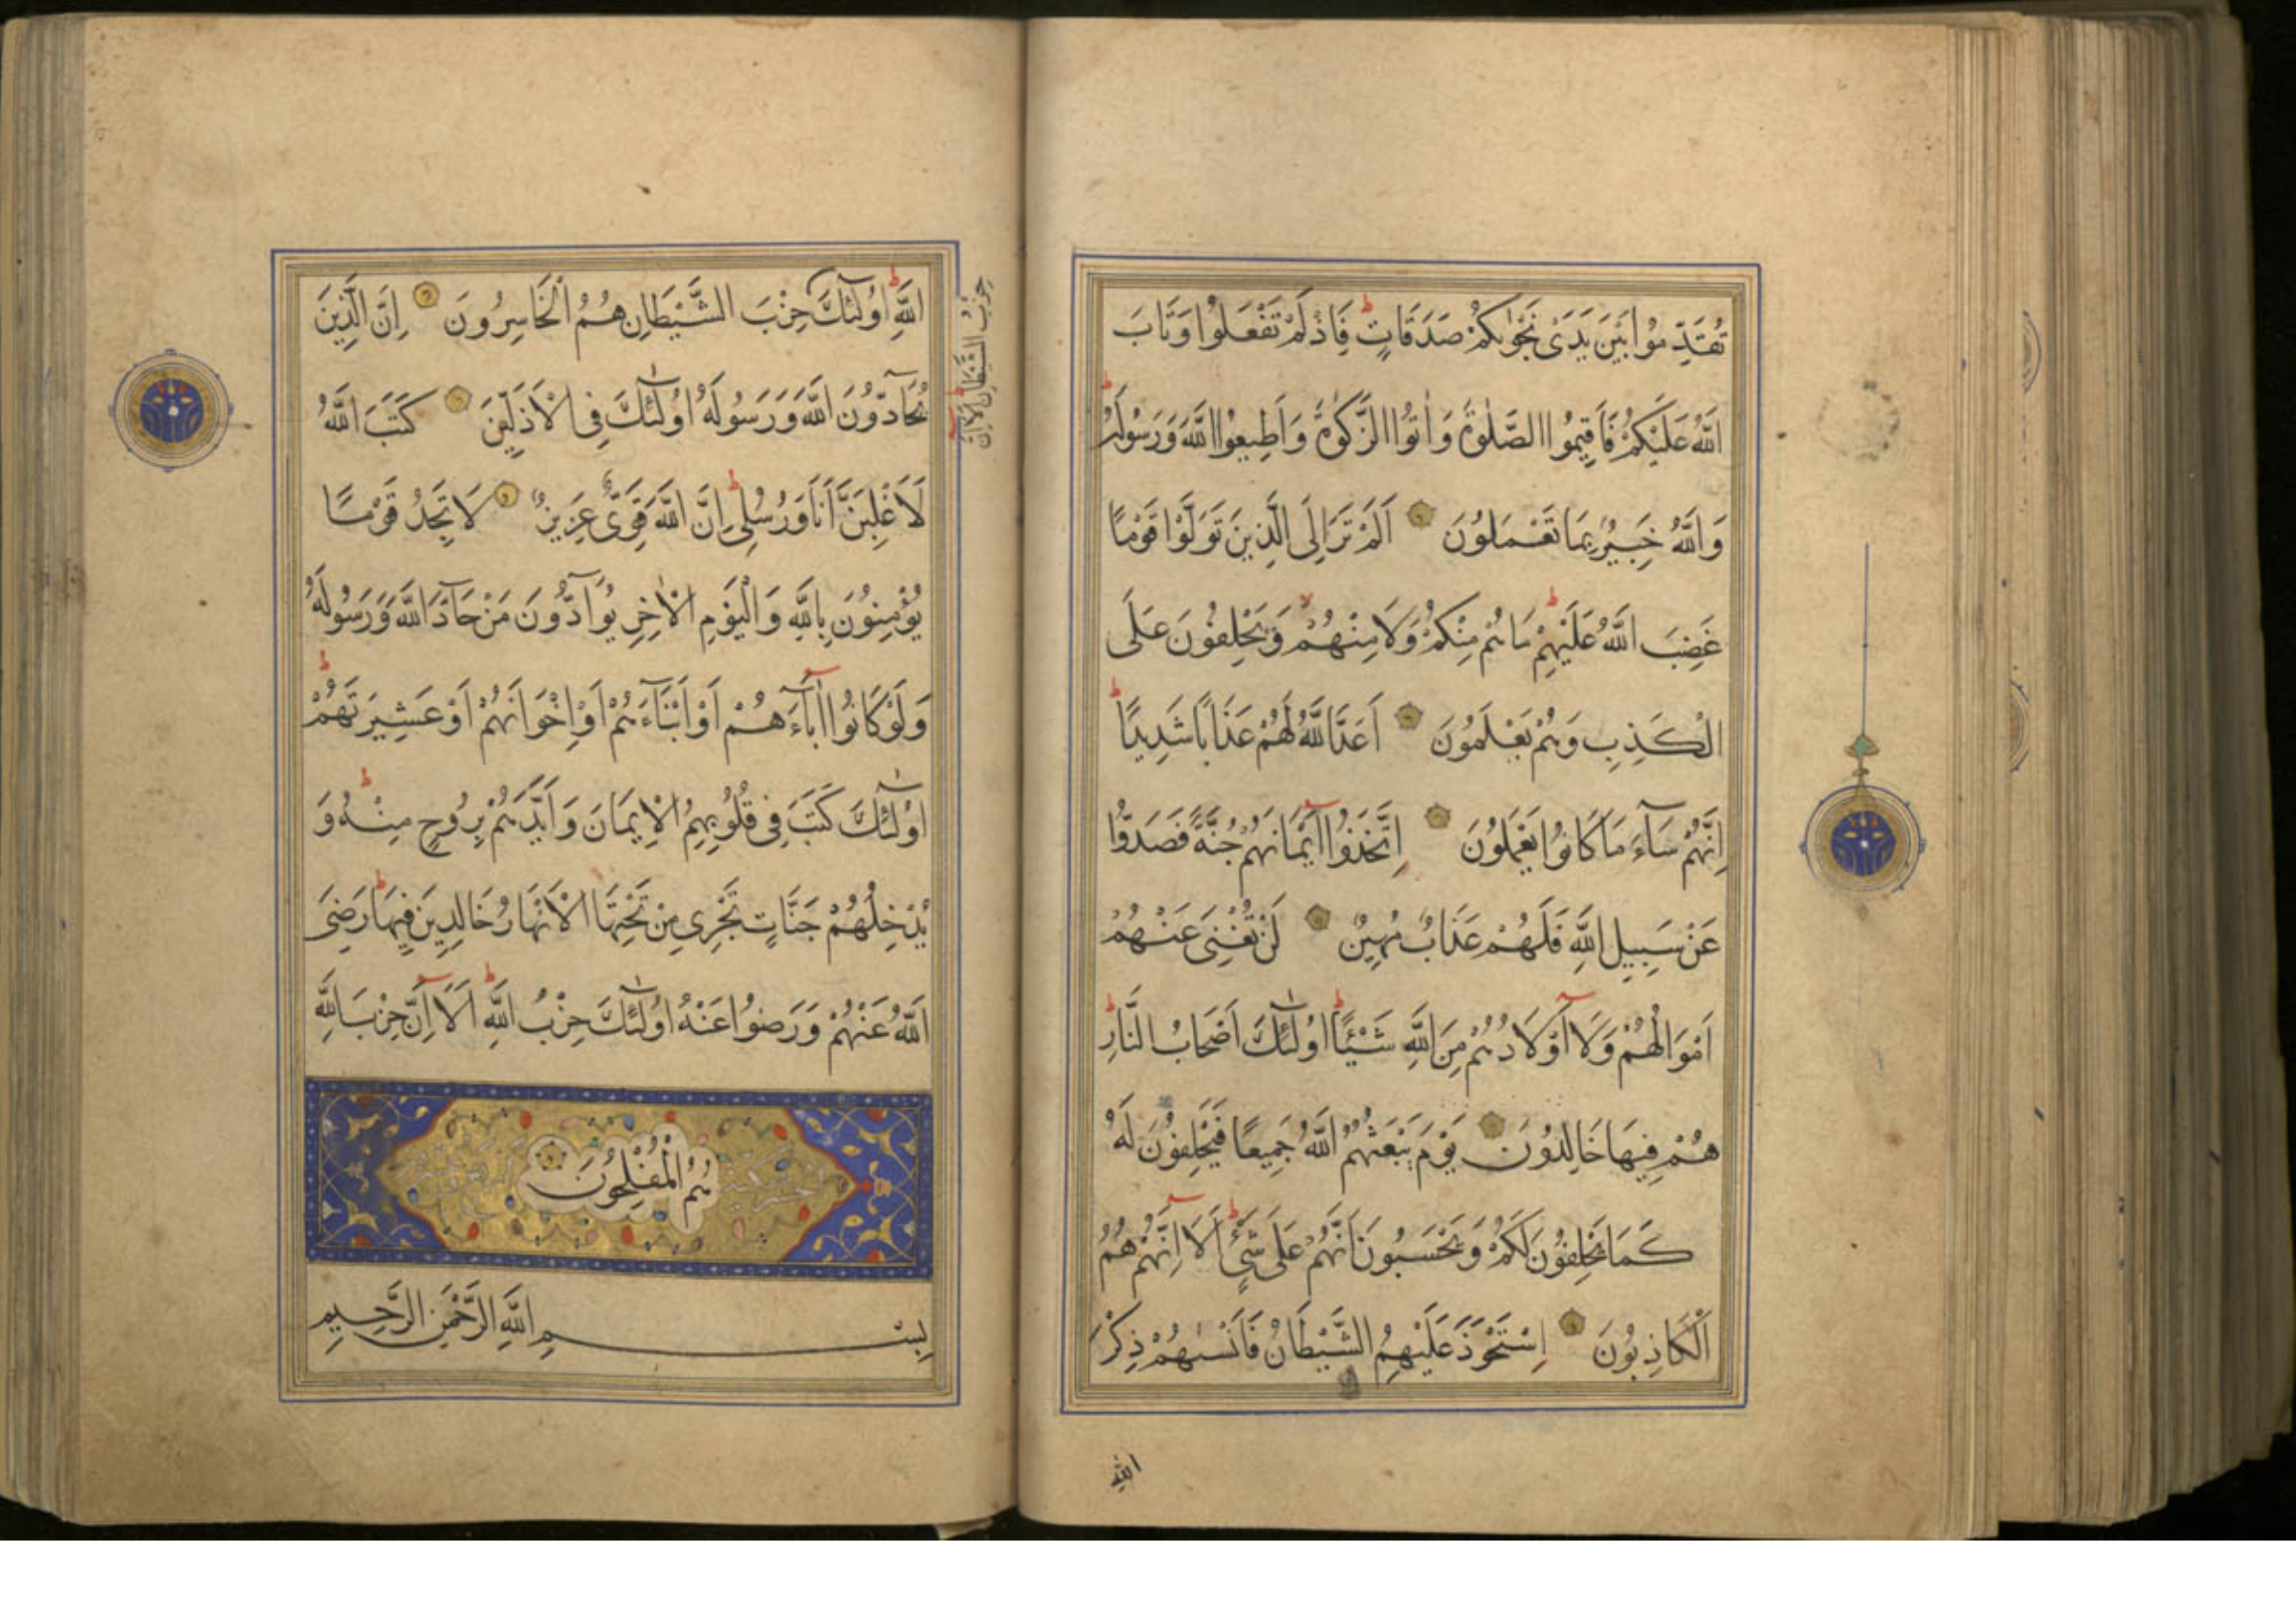 تُقَدِّمُوا بَيْنَ يَدَىْ نَجْوٰيكُمْ صَدَقَاتٍ فَاِذْ لَمْ تَفْعَلُوا وَتَابَ
اللَّهُ عَلَيْكُمْ فَاَقِيمُوا الصَّلٰوةَ وَاٰتُوا الزَّكٰوةَ وَاَطِيعُوا اللَّهَ وَرَسُولَهُ
وَاللَّهُ خَبِيرٌ بِمَا تَعْمَلُونَ اَلَمْ تَرَ اِلَى الَّذِينَ تَوَلَّوْا قَوْمًا
غَضِبَ اللَّهُ عَلَيْهِمْ مَا هُمْ مِنْكُمْ وَلَا مِنْهُمْ وَيَحْلِفُونَ عَلَى
الْكَذِبِ وَهُمْ يَعْلَمُونَ اَعَدَّ اللَّهُ لَهُمْ عَذَابًا شَدِيدًا
اِنَّهُمْ سَآءَ مَا كَانُوا يَعْمَلُونَ اِتَّخَذُوا اَيْمَانَهُمْ جُنَّةً فَصَدُّوا
عَنْ سَبِيلِ اللَّهِ فَلَهُمْ عَذَابٌ مُهِينٌ لَنْ تُغْنِىَ عَنْهُمْ
اَمْوَالُهُمْ وَلَآ اَوْلَادُهُمْ مِنَ اللَّهِ شَيْئًا اُولٰٓئِكَ اَصْحَابُ النَّارِ
هُمْ فِيهَا خَالِدُونَ يَوْمَ يَبْعَثُهُمُ اللَّهُ جَمِيعًا فَيَحْلِفُونَ لَهُ
كَمَا يَحْلِفُونَ لَكُمْ وَيَحْسَبُونَ اَنَّهُمْ عَلٰى شَىْءٍ اَلَآ اِنَّهُمْ هُمُ
الْكَاذِبُونَ اِسْتَحْوَذَ عَلَيْهِمُ الشَّيْطَانُ فَاَنْسٰيهُمْ ذِكْرَ
اللَّهِ
اللَّهِ اُولٰٓئِكَ حِزْبُ الشَّيْطَانِ هُمُ الْخَاسِرُونَ اِنَّ الَّذِينَ
حِزْبُ الشَّيْطَانِ اَلَآ اِنَّ
يُحَآدُّونَ اللَّهَ وَرَسُولَهُ اُولٰٓئِكَ فِى الْاَذَلِّينَ كَتَبَ اللَّهُ
لَاَغْلِبَنَّ اَنَا وَرُسُلِى اِنَّ اللَّهَ قَوِىٌّ عَزِيزٌ لَا تَجِدُ قَوْمًا
يُؤْمِنُونَ بِاللَّهِ وَالْيَوْمِ الْاٰخِرِ يُوَآدُّونَ مَنْ حَآدَّ اللَّهَ وَرَسُولَهُ
وَلَوْ كَانُوا اٰبَآءَهُمْ اَوْ اَبْنَآءَهُمْ اَوْ اِخْوَانَهُمْ اَوْ عَشِيرَتَهُمْ
اُولٰٓئِكَ كَتَبَ فِى قُلُوبِهِمُ الْاِيمَانَ وَاَيَّدَهُمْ بِرُوحٍ مِنْهُ وَ
يُدْخِلُهُمْ جَنَّاتٍ تَجْرِى مِنْ تَحْتِهَا الْاَنْهَارُ خَالِدِينَ فِيهَا رَضِىَ
اللَّهُ عَنْهُمْ وَرَضُوا عَنْهُ اُولٰٓئِكَ حِزْبُ اللَّهِ اَلَآ اِنَّ حِزْبَ اللَّهِ
هُمُ الْمُفْلِحُونَ
بِسْمِ اللَّهِ الرَّحْمٰنِ الرَّحِيمِ